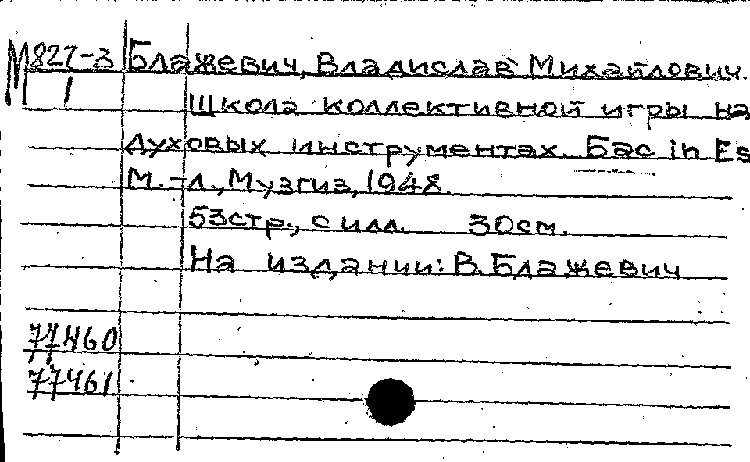 М827-3 Блажевич, Владислав Михайлович.
1 Школа коллективной игры на
духовых инструментах. Бас in Es
М.-Л., Музгиз, 1948.
53стр., с илл. 30см.
На издании: В. Блажевич
77460
77461